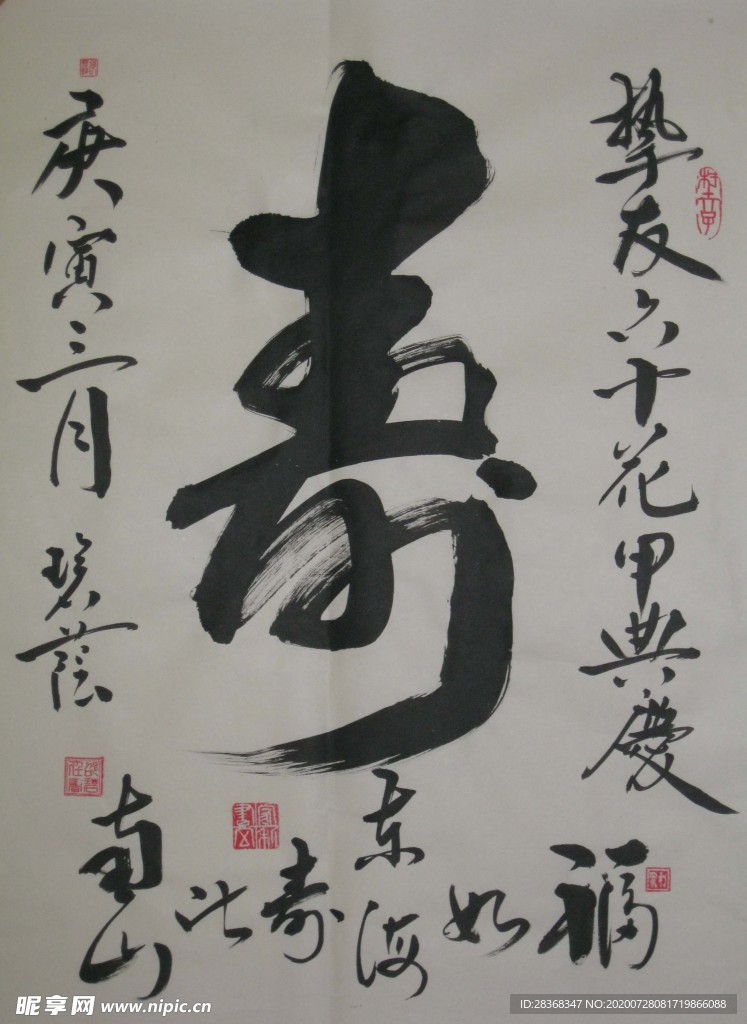 挚友六十花甲典慶
寿
福如东海寿比南山
庚寅三月碧蔭
昵享网 www.nipic.cn
ID:28368347 NO:20200728081719866088